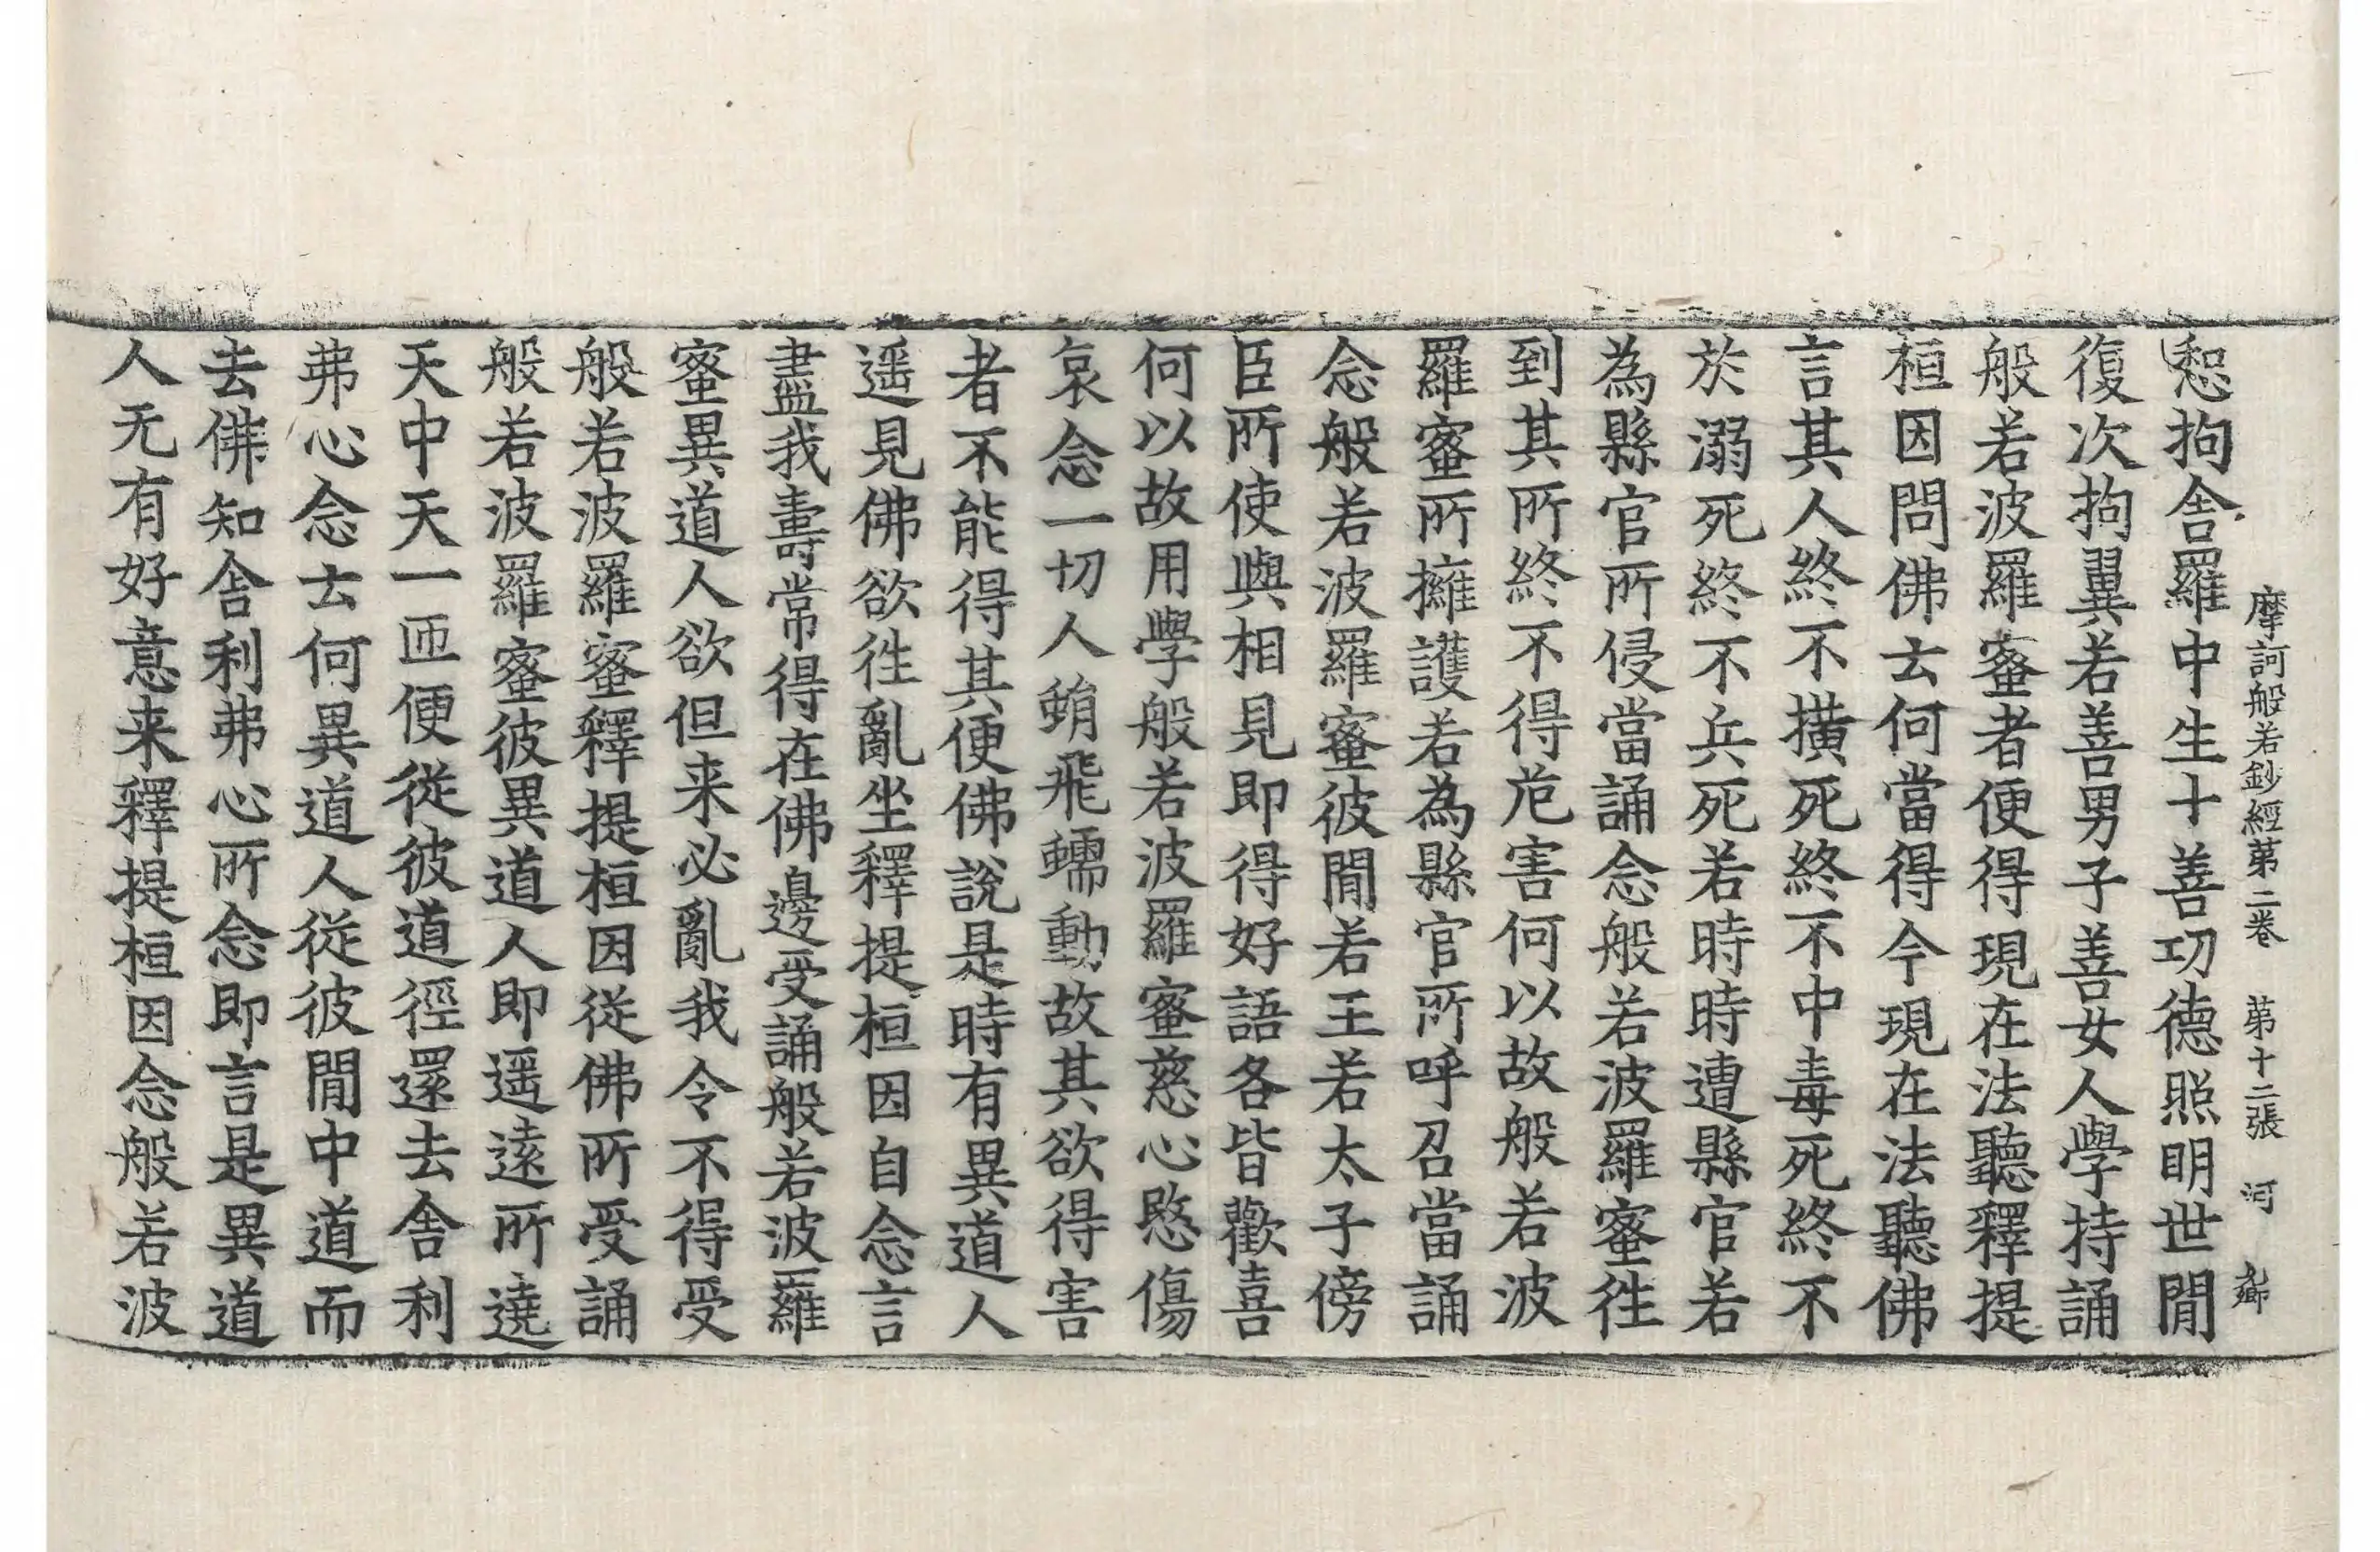 摩訶般若鈔經苐二卷 苐十二張 河
惒拘舍羅中生十善功德照明世閒
復次拘翼若善男子善女人學持誦
般若波羅蜜者便得現在法聽釋提
桓因問佛云何當得今現在法聽佛
言其人終不橫死終不中毒死終不
於溺死終不兵死若時時遭縣官若
為縣官所侵當誦念般若波羅蜜往
到其所終不得危害何以故般若波
羅蜜所擁護若為縣官所呼召當誦
念般若波羅蜜彼閒若王若太子傍
臣所使與相見即得好語各皆歡喜
何以故用學般若波羅蜜慈心愍傷
哀念一切人蜎飛蠕動故其欲得害
者不能得其便佛說是時有異道人
遥見佛欲往亂坐釋提桓因自念言
盡我壽常得在佛邊受誦般若波羅
蜜異道人欲但来必亂我令不得受
般若波羅蜜釋提桓因從佛所受誦
般若波羅蜜彼異道人即遥遠所遶
天中天一匝便從彼道徑還去舍利
弗心念云何異道人從彼閒中道而
去佛知舍利弗心所念即言是異道
人无有好意来釋提桓因念般若波